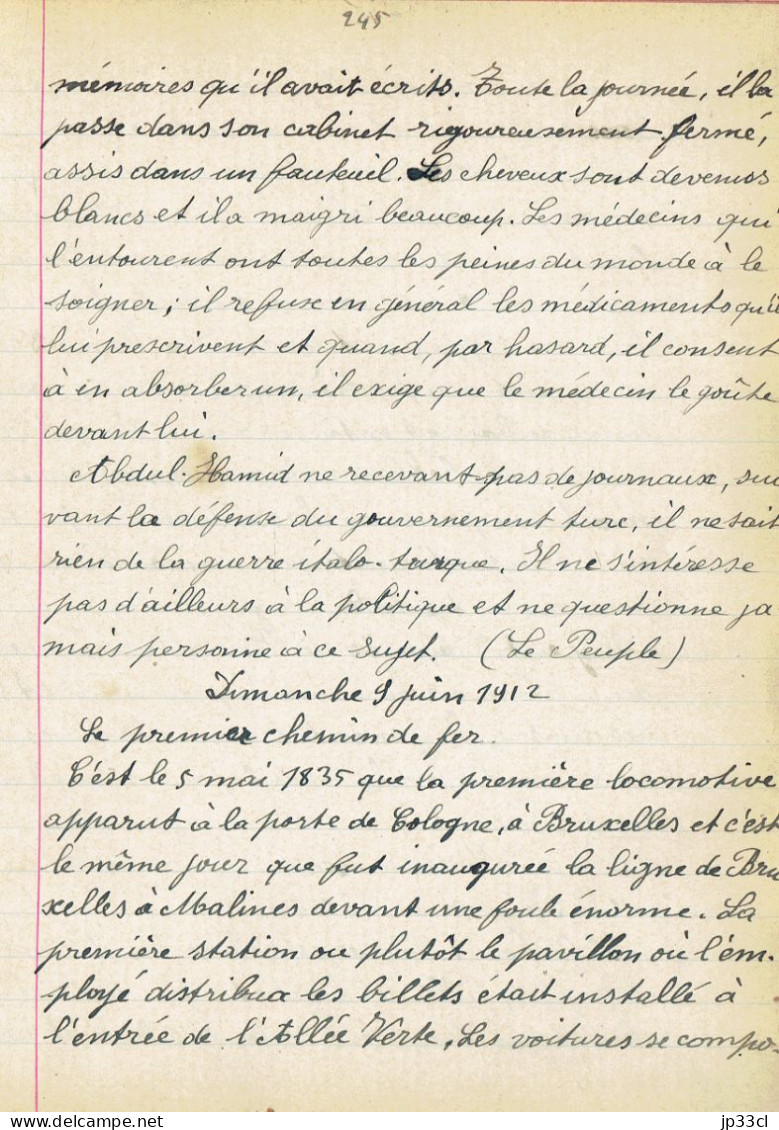 245
mémoires qu'il avait écrits. Toute la journée, il la
passe dans son cabinet rigoureusement fermé,
assis dans un fauteuil. Les cheveux sont devenus
blancs et il a maigri beaucoup. Les médecins qui
l'entourent ont toutes les peines du monde à le
soigner ; il refuse en général les médicaments qu'il
lui prescrivent et quand, par hasard, il consent
à en absorber un, il exige que le médecin le goûte
devant lui.
Abdul-Hamid ne recevant pas de journaux, sui
vant la défense du gouvernement turc, il ne sait
rien de la guerre italo-turque. Il ne s'intéresse
pas d'ailleurs à la politique et ne questionne ja
mais personne à ce sujet. (Le Peuple)
Dimanche 9 juin 1912
Le premier chemin de fer.
C'est le 5 mai 1835 que la première locomotive
apparut à la porte de Cologne, à Bruxelles et c'est
le même jour que fut inaugurée la ligne de Bru
xelles à Malines devant une foule énorme. La
première station ou plutôt le pavillon où l'em-
ployé distribua les billets était installé à
l'entrée de l'Allée Verte. Les voitures se compo-
delcampe.net
jp33cl